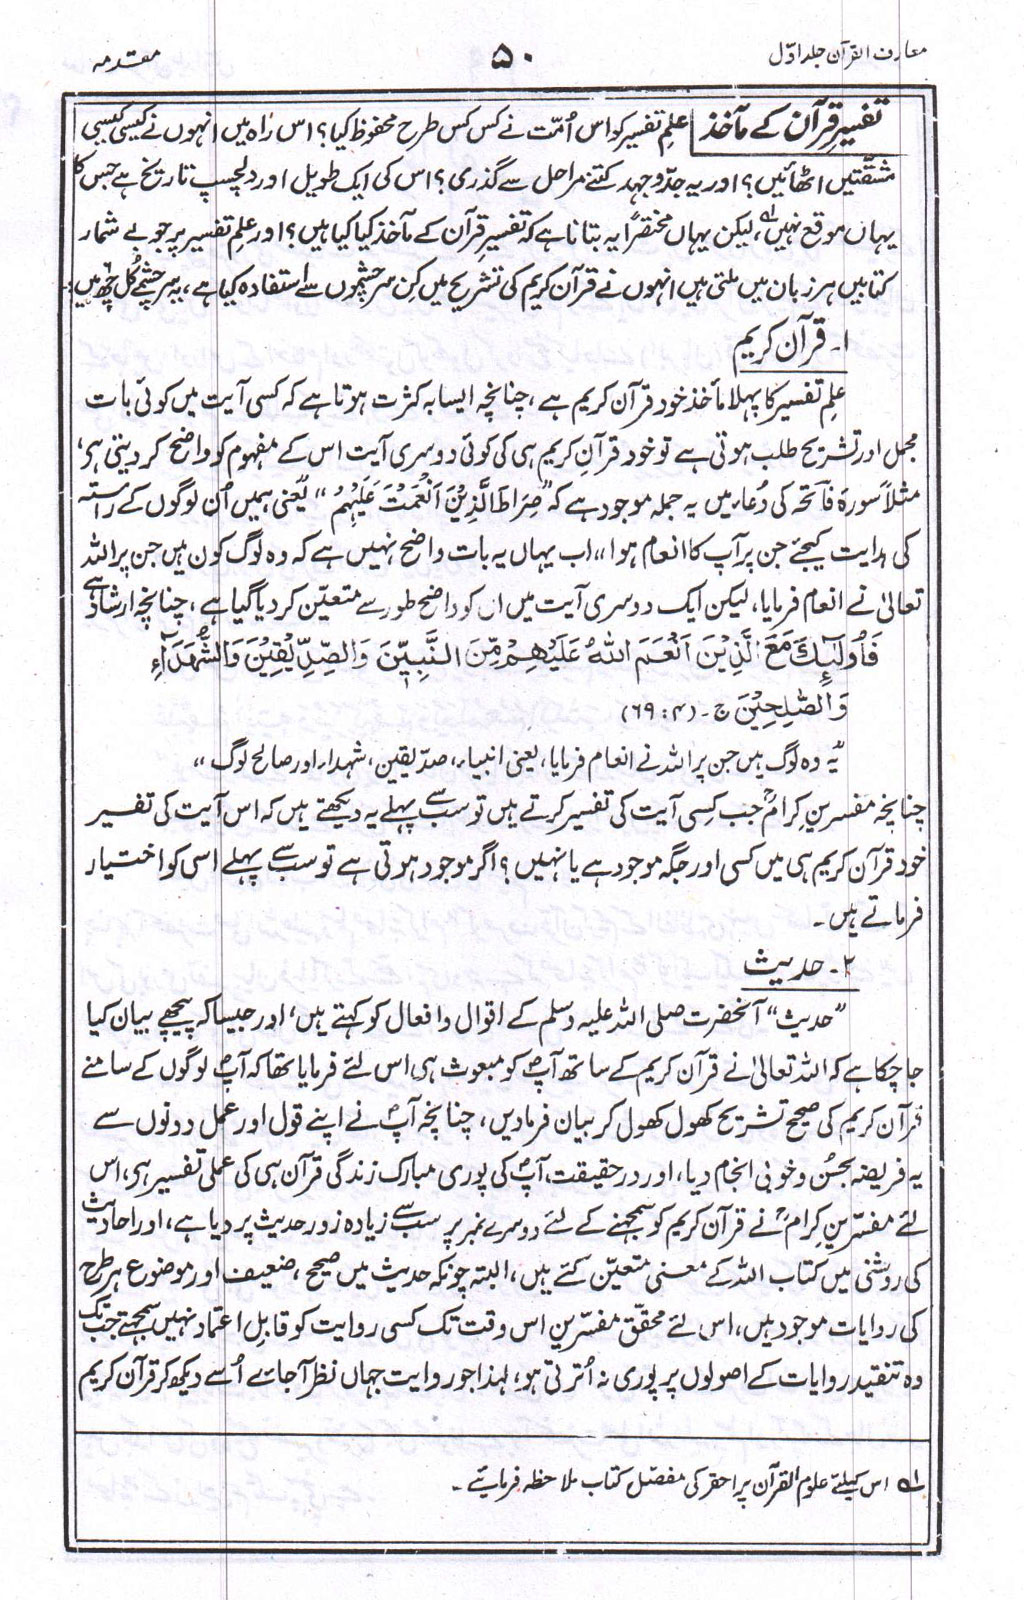 معارف القرآن جلد اوّل
۵۰
مقدمہ
تفسیرِ قرآن کے مآخذ علمِ تفسیر کو اس اُمّت نے کس کس طرح محفوظ کیا؟ اس راہ میں انہوں نے کیسی کیسی
مشقتیں اٹھائیں؟ اور یہ جدّوجہد کتنے مراحل سے گذری؟ اس کی ایک طویل اور دلچسپ تاریخ ہے جس کا
یہاں موقع نہیں لہ، لیکن یہاں مختصراً یہ بتانا ہے کہ تفسیرِ قرآن کے مآخذ کیا کیا ہیں؟ اور علمِ تفسیر پر جو بے شمار
کتابیں ہر زبان میں ملتی ہیں انہوں نے قرآن کریم کی تشریح میں کِن سرچشموں سے استفادہ کیا ہے، یہ سرچشمے کُل چھ ہیں:
۱۔ قرآن کریم
علمِ تفسیر کا پہلا مأخذ خود قرآن کریم ہے، چنانچہ ایسا بہ کثرت ہوتا ہے کہ کسی آیت میں کوئی بات
مجمل اور تشریح طلب ہوتی ہے تو خود قرآنِ کریم ہی کی کوئی دوسری آیت اس کے مفہوم کو واضح کر دیتی ہی،
مثلاً سورۂ فاتحہ کی دُعاء میں یہ جملہ موجود ہے کہ ”صِرَاطَ الَّذِیْنَ اَنْعَمْتَ عَلَیْہِمْ“ یعنی ہمیں اُن لوگوں کے راستہ
کی ہدایت کیجئے جن پر آپ کا انعام ہوا“ اب یہاں یہ بات واضح نہیں ہے کہ وہ لوگ کون ہیں جن پر اللہ
تعالیٰ نے انعام فرمایا، لیکن ایک دوسری آیت میں ان کو واضح طور سے متعیّن کر دیا گیا ہے، چنانچہ ارشاد ہے
فَاُولٰٓئِكَ مَعَ الَّذِیْنَ اَنْعَمَ اللّٰهُ عَلَیْهِمْ مِّنَ النَّبِیّٖنَ وَالصِّدِّیْقِیْنَ وَالشُّهَدَآءِ
وَالصّٰلِحِیْنَ ج ۔ (۴ : ۶۹)
”یہ وہ لوگ ہیں جن پر اللہ نے انعام فرمایا، یعنی انبیاء، صدّیقین، شہداء اور صالح لوگ“
چنانچہ مفسرینِ کرامؒ جب کسی آیت کی تفسیر کرتے ہیں تو سب سے پہلے یہ دیکھتے ہیں کہ اس آیت کی تفسیر
خود قرآن کریم ہی میں کسی اور جگہ موجود ہے یا نہیں؟ اگر موجود ہوتی ہے تو سب سے پہلے اسی کو اختیار
فرماتے ہیں۔
۲۔ حدیث
”حدیث“ آنحضرت صلی اللہ علیہ وسلم کے اقوال و افعال کو کہتے ہیں، اور جیسا کہ پیچھے بیان کیا
جا چکا ہے کہ اللہ تعالیٰ نے قرآن کریم کے ساتھ آپؐ کو مبعوث ہی اس لئے فرمایا تھا کہ آپؐ لوگوں کے سامنے
قرآن کریم کی صحیح تشریح کھول کھول کر بیان فرمادیں، چنانچہ آپؐ نے اپنے قول اور عمل دونوں سے
یہ فریضہ بحسُن و خوبی انجام دیا، اور درحقیقت، آپؐ کی پوری مبارک زندگی قرآن ہی کی عملی تفسیر ہی، اس
لئے مفسّرینِ کرامؒ نے قرآن کریم کو سمجھنے کے لئے دوسرے نمبر پر سب سے زیادہ زور حدیث پر دیا ہے، اور احادیث
کی روشنی میں کتاب اللہ کے معنی متعیّن کئے ہیں، البتہ چونکہ حدیث میں صحیح، ضعیف اور موضوع ہر طرح
کی روایات موجود ہیں، اس لئے محقّق مفسّرین اس وقت تک کسی روایت کو قابلِ اعتماد نہیں سمجھتے جب تک
وہ تنقیدِ روایات کے اصولوں پر پوری نہ اُترتی ہو، لہٰذا جو روایت جہاں نظر آجائے اُسے دیکھ کر قرآن کریم
لہ اس کیلئے علوم القرآن پر احقر کی مفصّل کتاب ملاحظہ فرمائیے۔